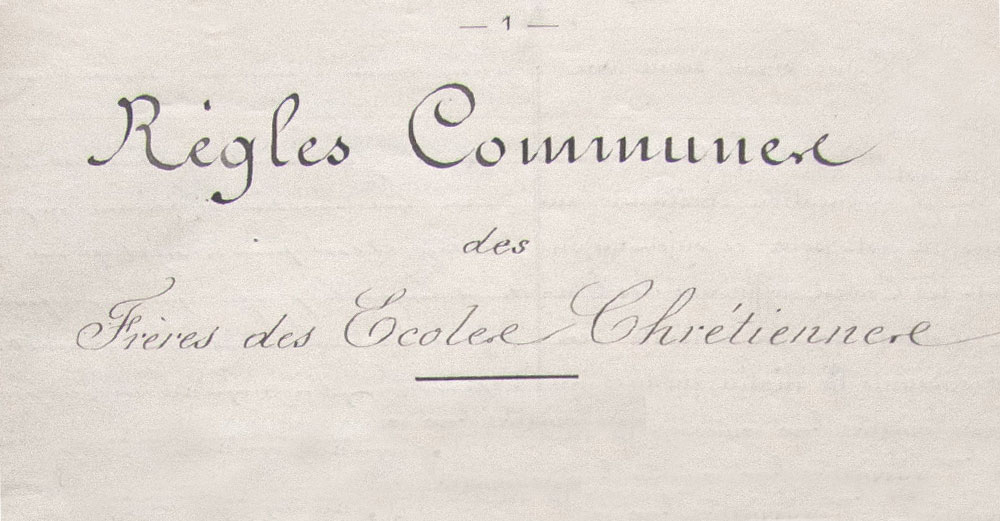 — 1 —
Règles Communes
des
Frères des Ecoles Chrétiennes